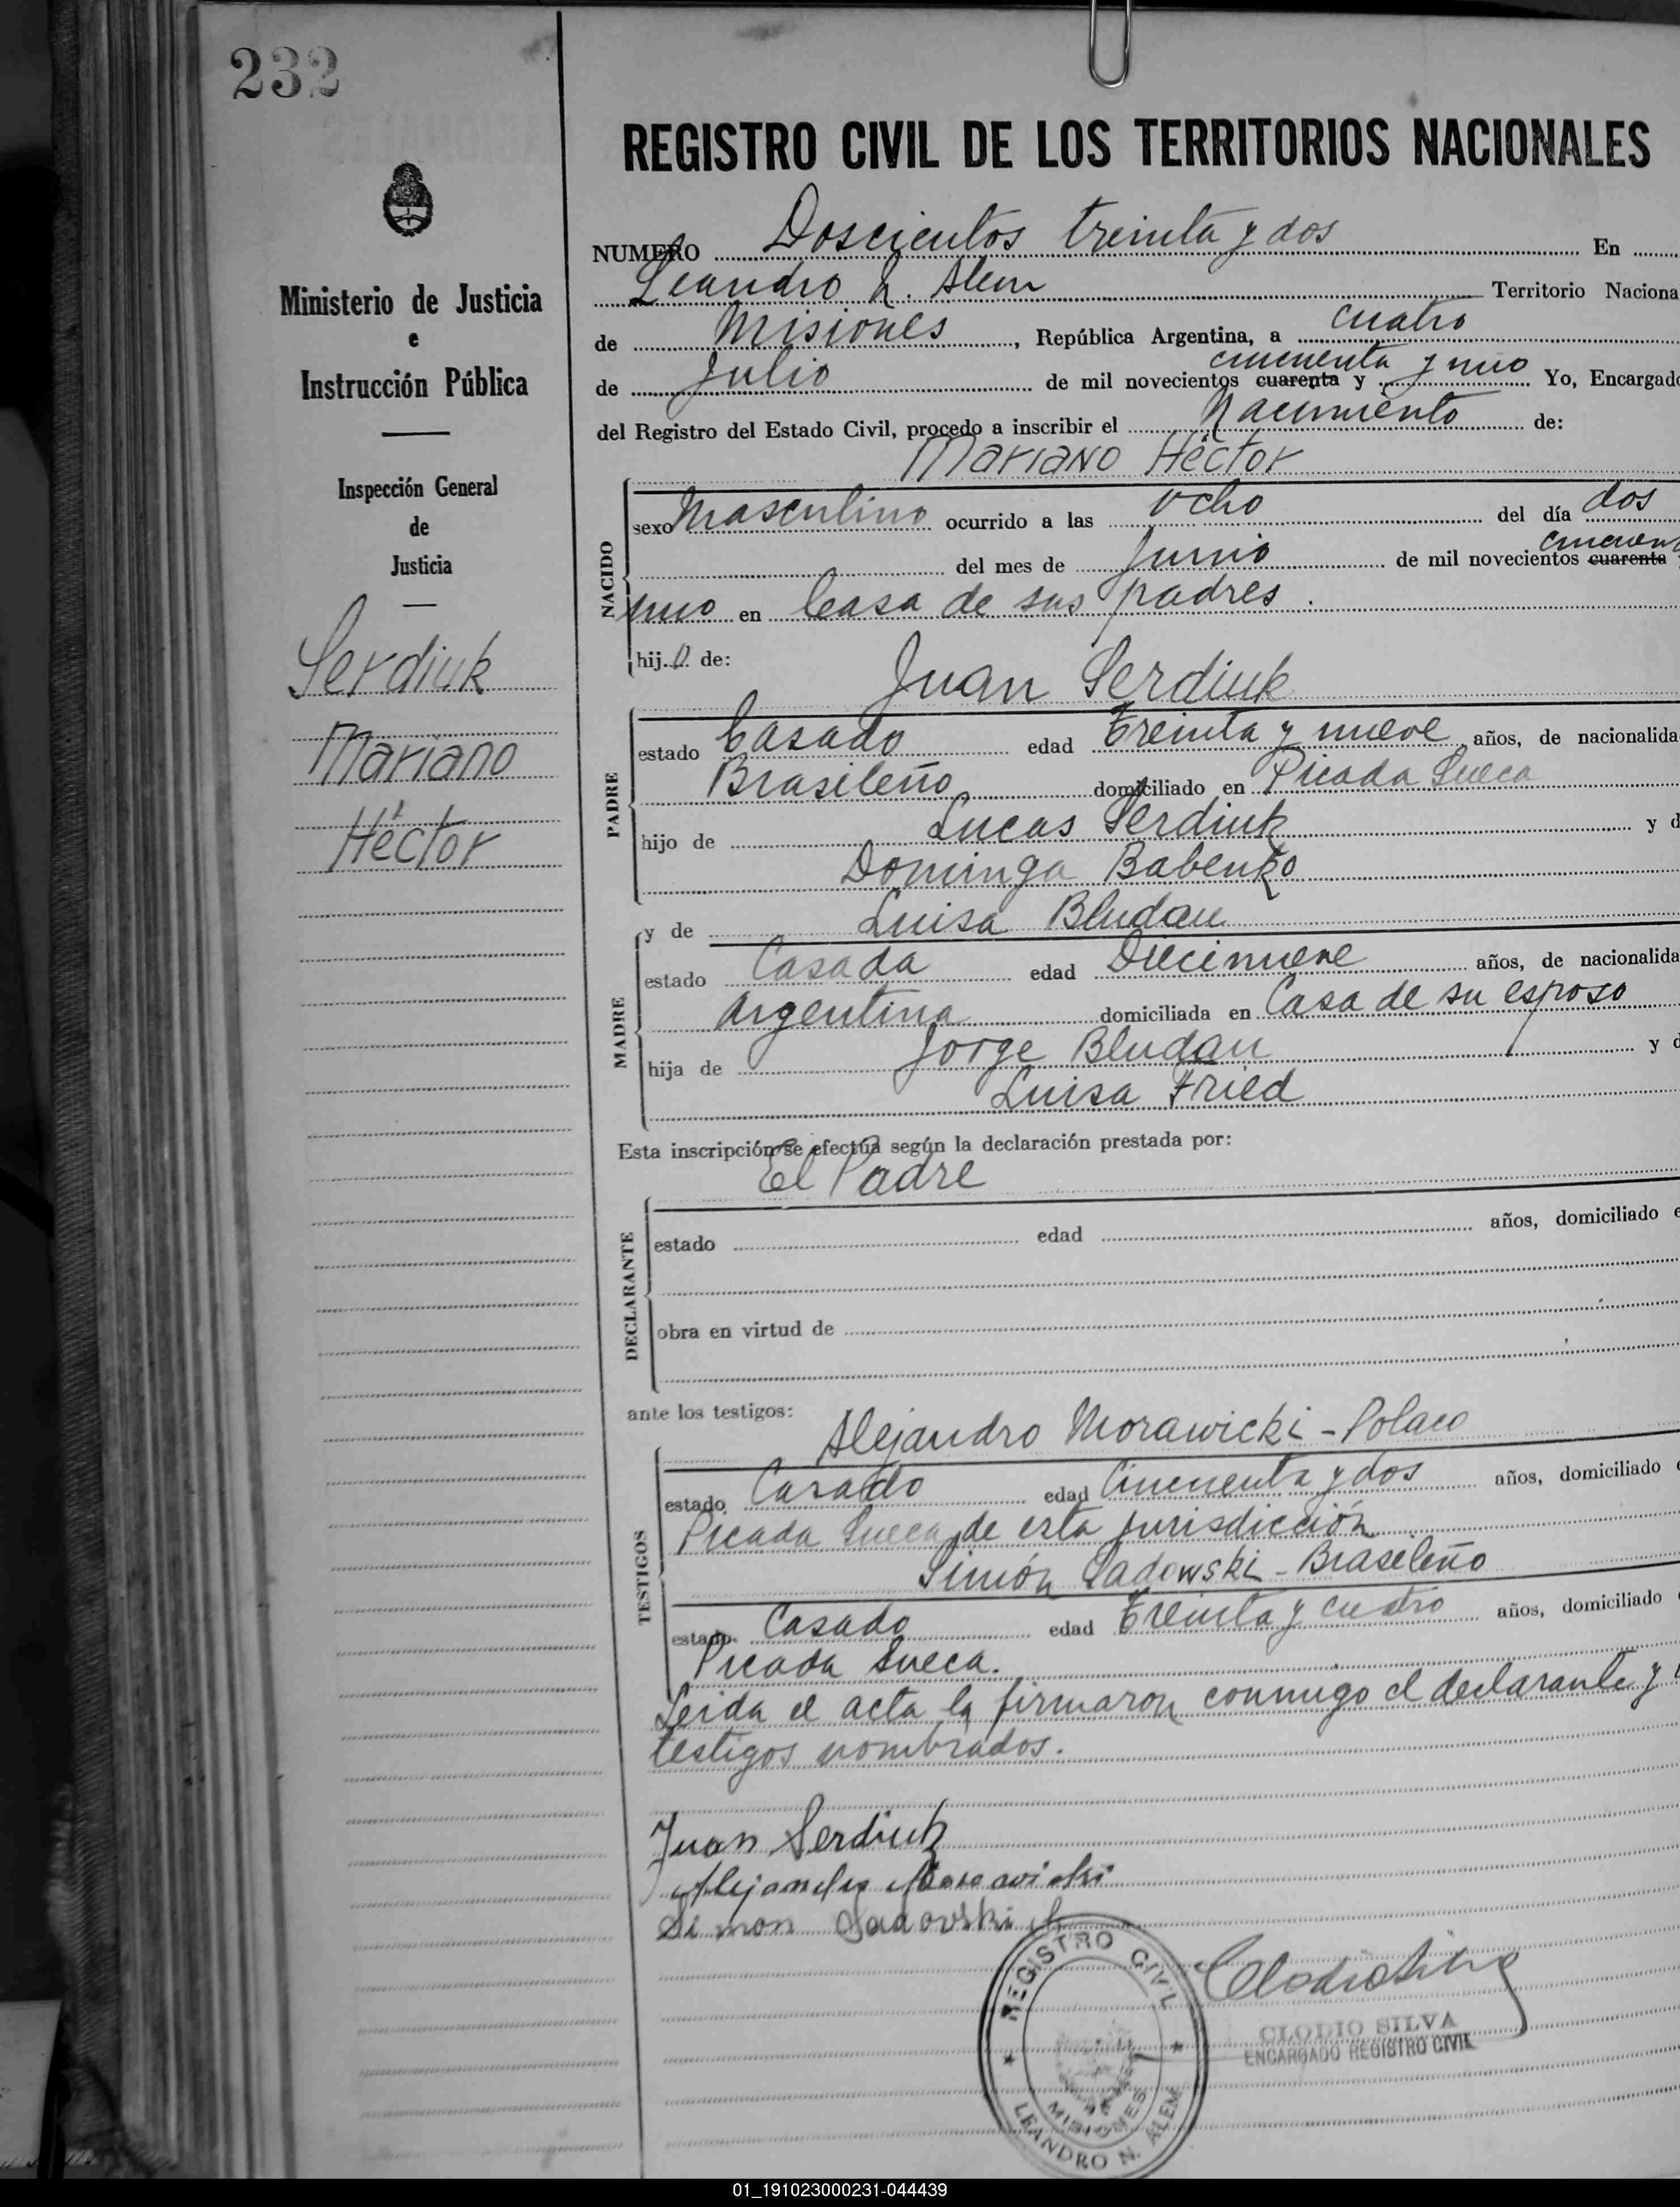 232
Ministerio de Justicia
e
Instrucción Pública
Inspección General
de
Justicia
Serdiuk
Mariano
Héctor
REGISTRO CIVIL DE LOS TERRITORIOS NACIONALES
NUMERO Doscientos treinta y dos En
Leandro N. Alem Territorio Naciona
de Misiones, República Argentina, a cuatro
de Julio de mil novecientos cuarenta cincuenta y uno Yo, Encargado
del Registro del Estado Civil, procedo a inscribir el Nacimiento de:
Mariano Héctor
NACIDO
sexo Masculino ocurrido a las ocho del día dos
del mes de Junio de mil novecientos cuarenta
uno en Casa de sus padres.
hijo de: Juan Serdiuk
PADRE
estado Casado edad Treinta y nueve años, de nacionalida
Brasileño domiciliado en Picada Sueca
hijo de Lucas Serdiuk y d
Dominga Babenko
y de Luisa Bludau
MADRE
estado Casada edad Diecinueve años, de nacionalida
Argentina domiciliada en Casa de su esposo
hija de Jorge Bludau y d
Luisa Fried
Esta inscripción se efectúa según la declaración prestada por:
El Padre
DECLARANTE
estado edad años, domiciliado e
obra en virtud de
ante los testigos:
Alejandro Morawicki - Polaco
TESTIGOS
estado Casado edad Cincuenta y dos años, domiciliado
Picada Sueca, de esta jurisdicción
Simón Sadowski - Brasileño
estado Casado edad Treinta y cuatro años, domiciliado
Picada Sueca.
Leida el acta la firmaron conmigo el declarante y
testigos nombrados.
Juan Serdiuk
Alejandro Morawicki
Simon Sadovski
REGISTRO CIVIL
MISIONES
LEANDRO N. ALEM
Clodio Silva
CLODIO SILVA
ENCARGADO REGISTRO CIVIL
01_191023000231-044439